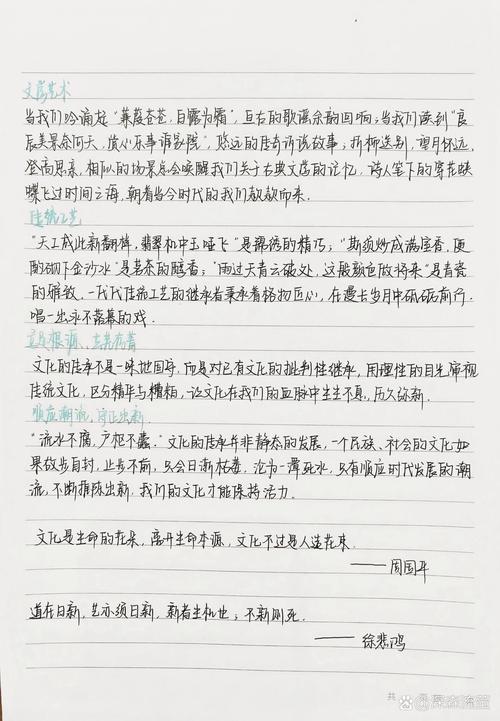 文学艺术
当我们吟诵起“蒹葭苍苍,白露为霜”,亘古的歌谣余韵回响;当我们读到“良
辰美景奈何天,赏心乐事谁家院”,悠远的传奇诉说故事;折柳送别,望月怀远,
登高思亲,相似的场景总会唤醒我们关于古典文学的记忆,诗人笔下的穿花蛱
蝶飞过时间之海,朝着当今时代的我们款款而来.
传统工艺
“天工成此新翻样,翡翠机中玉哑飞”是缂绣的精巧;“斯须炒成满室香,便
酌砌下金沙水”是茗茶的醇香;“雨过天青云破处,这般颜色做将来”是青瓷
的雅致,一代代传统工艺的继承者秉承着格物匠心,在漫长岁月中砥砺前行,
唱一出永不落幕的戏.
文化的传承不是一味地固守,而是对已有文化的批判性继承,用理性的目光审视
传统文化,区分精华与糟粕,让文化在我们的血脉中生生不息,历久弥新.
顺应潮流,守正出新
“流水不腐,户枢不蠹.”文化的传承并非静态的发展,一个民族、社会的文化如
果故步自封,止步不前,只会日渐枯萎,沦为一潭死水,只有顺应时代发展的潮
流,不断推陈出新,我们的文化才能保持活力.
文化是生命的花朵,离开生命本源,文化不过是人造花束.
——周国平
道在日新,艺亦须日新,新者生机也;不新则死.
——徐悲鸿
共 页
Bai百度